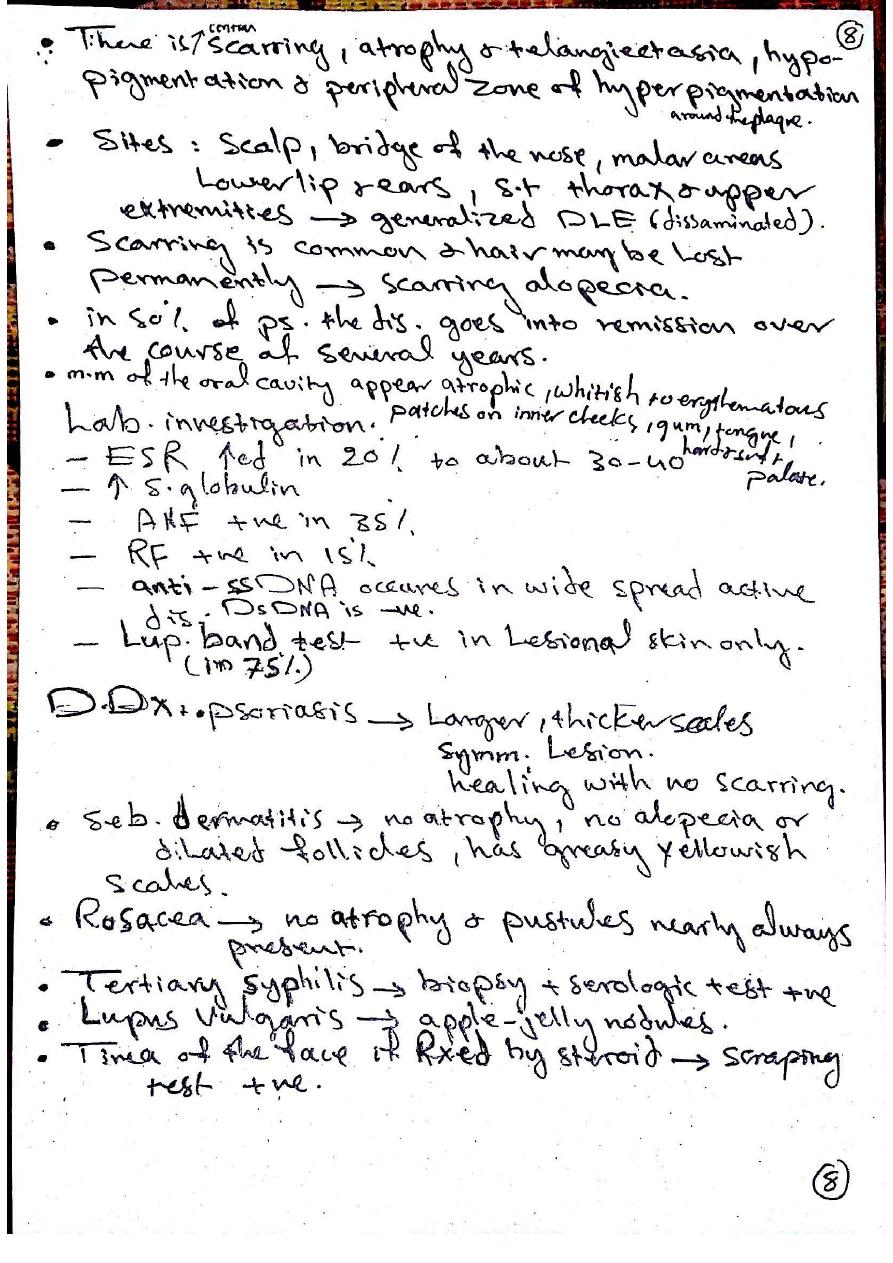 ⑧
central
• There is ↑ scarring, atrophy & telangiectasia, hypo-
pigmentation & peripheral zone of hyperpigmentation
around the plaque.
• Sites : Scalp, bridge of the nose, malar areas
Lower lip & ears, s.t thorax & upper
extremities → generalized DLE (dissaminated).
• Scarring is common & hair may be Lost
permanently → scarring alopecia.
• in 50% of ps. the dis. goes into remission over
the course of several years.
• m.m of the oral cavity appear atrophic, whitish to erythematous
patches on inner cheeks, gum, tongue,
hard & soft
palate.
Lab. investigation.
– ESR ↑ed in 20% to about 30-40
– ↑ S. globulin
– ANF +ve in 35%
– RF +ve in 15%
– anti-ssDNA occures in wide spread active
dis; DsDNA is -ve.
– Lup. band test +ve in Lesional skin only.
(in 75%)
D.Dx:. • psoriasis → Larger, thicker scales
symm. Lesion.
healing with no scarring.
• seb. dermatitis → no atrophy, no alopecia or
dilated follicles, has greasy yellowish
scales.
• Rosacea → no atrophy & pustules nearly always
present.
• Tertiary syphilis → biopsy + serologic test +ve
• Lupus Vulgaris → apple-jelly nodules.
• Tinea of the face if Rxed by steroid → scraping
test +ve.
⑧